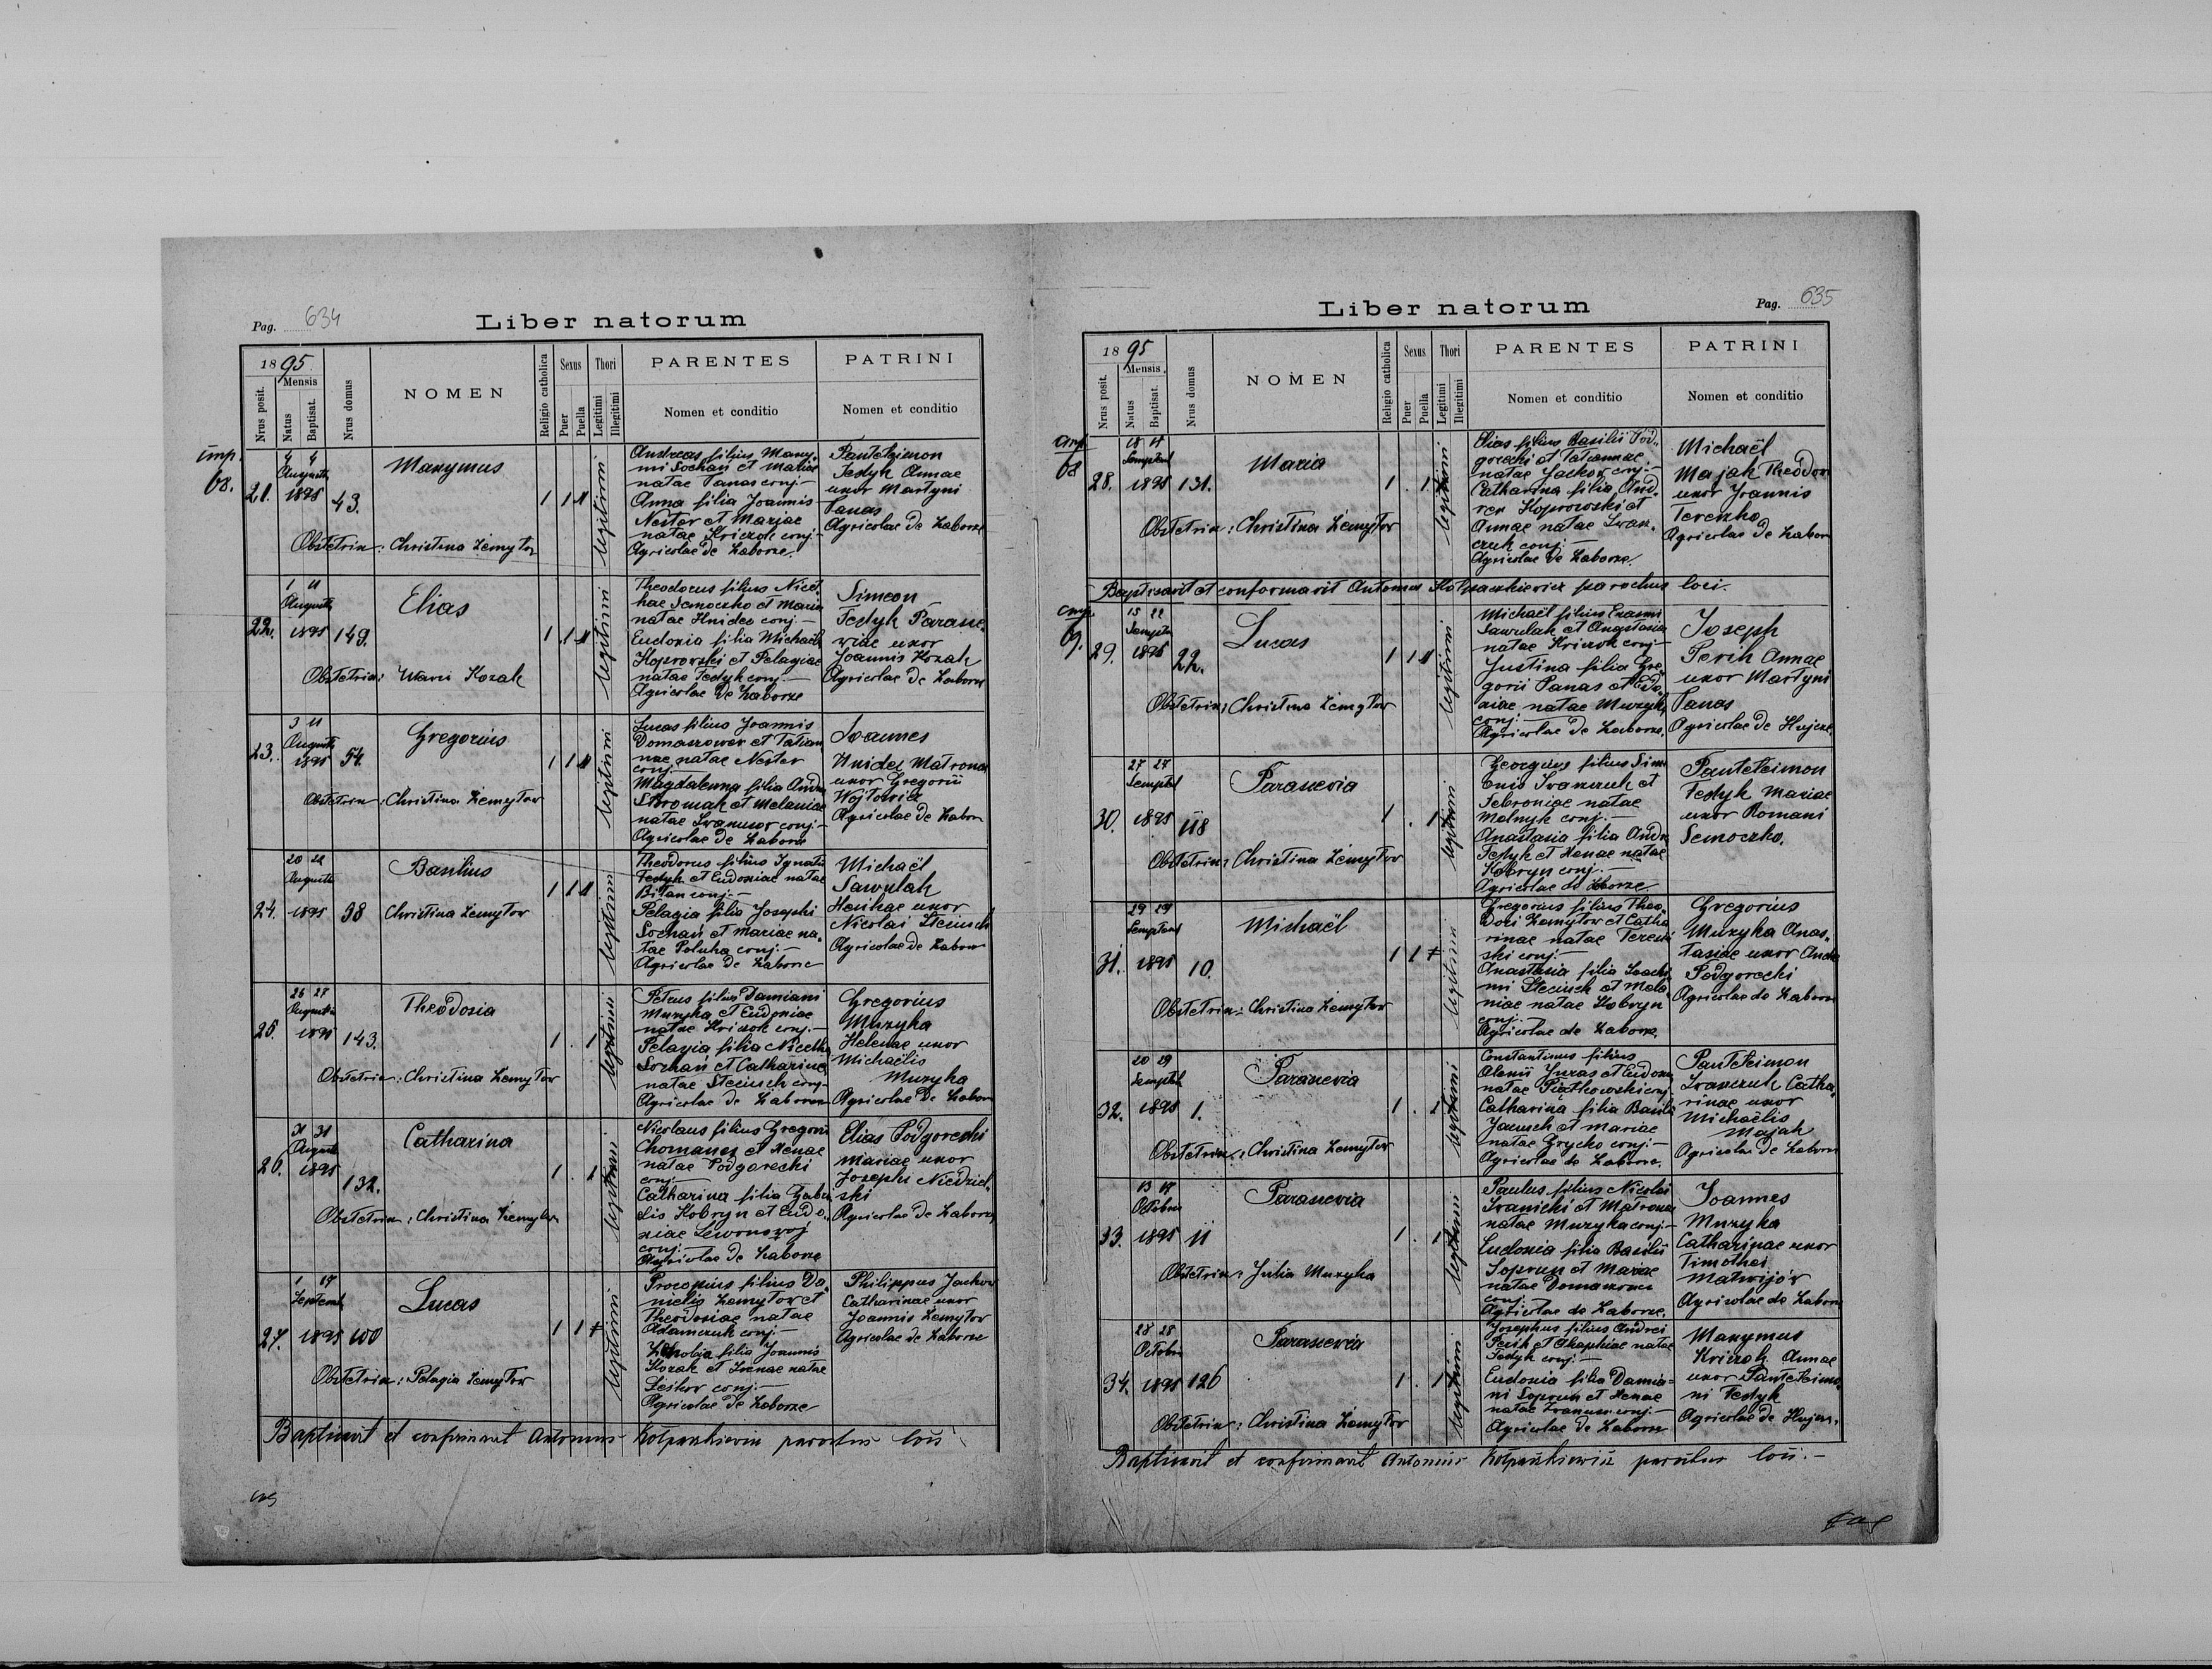 Pag. 634
Liber natorum
1895.
Nrus posit.
Mensis
Natus
Baptisat.
Nrus domus
NOMEN
Religio catholica
Sexus
Puer
Puella
Thori
Legitimi
Illegitimi
PARENTES
Nomen et conditio
PATRINI
Nomen et conditio
imp.
68.
21.
4 4
Augusti
1895
43.
Maxymus
Obstetrix: Christina Zemytor
1 1
legitimi
Andreas filius Maxy-
mi Sochań et Mariae
natae Panas conj.-
Anna filia Joannis
Nestor et Mariae
natae Kriczok conj.-
Agricolae de Zaborze.
Panteleimon
Fedyk Annae
uxor Martyni
Panas
Agricolae de Zaborze
22.
1 11
Augusti
1895
149.
Elias
Obstetrix: Kozak
1 1
legitimi
Theodorus filius Nicet-
hae Semoczko et Maria
natae Hnidec conj-
Eudoxia filia Michaelis
Koprowski et Pelagiae
natae Fedyk conj.-
Agricolae de Zaborze
Simeon
Fedyk Parasce-
viae uxor
Joannis Kozak
Agricolae de Zaborze
23.
3 11
Augusti
1895
54.
Gregorius
Obstetrix: Christina Zemytor
1 1
legitimi
Lucas filius Joannis
Domaszower et Tatian
nae natae Nestor
conj.-
Magdalenna filia Andr
Stromak et Melaniae
natae Iwanusor conj-
Agricolae de Zaborze
Joannes
Hnidec Matrona
uxor Gregorii
Wojtowicz
Agricolae de Zabor
24.
Augusti
1895
38
Basilius
Christina Zemytor
1 1
legitimi
Theodorus filius Ignatii
Fedyk et Eudoxiae natae
Bitan conj.-
Pelagia filia Josephi
Sochań et Mariae na-
tae Poluha conj.-
Agricolae de Zaborze
Michaël
Sawulak
uxor
Nicolai Steciuch
Agricolae de Zaborze
25.
26 27
Augusti
1895
143.
Theodosia
Obstetrix: Christina Zemytor
1 . 1
legitimi
Petrus filius Damiani
Muzyka et Eudoxiae
natae Kriczok conj.-
Pelagia filia Nicetha
Sochań et Catharinae
natae Steciuch conj-
Agricolae de Zaborze
Gregorius
Muzyka
Helenae uxor
Michaëlis
Muzyka
Agricolae de Zabor
26.
31
Augusti
1895
132.
Catharina
Obstetrix: Christina Zemytor
1 . 1
legitimi
Nicolaus filius Gregorii
Chomanez et Xenae
natae Podgorecki
conj.-
Catharina filia Gabri
elis Kobryn et Eudo-
xiae Lewonowoj
conj.-
Agricolae de Zaborze
Elias Podgorecki
Mariae uxor
Josephi Niedziel-
ski
Agricolae de Zaborze
27.
1 17
Septemb
1895
100
Lucas
Obstetrix: Pelagia Zemytor
1 1
legitimi
Procopius filius Da-
nielis Zemytor et
Theodosiae natae
Adamczuk conj.-
Zenobia filia Joannis
Kozak et Irenae natae
Leskor conj.-
Agricolae de Zaborze
Philippus Jackow
Catharinae uxor
Joannis Zemytor
Agricolae de Zaborze
Baptisavit et confirmavit Antonius Kolpaczkiewicz parochus loci
Pag. 635
Liber natorum
1895
Nrus posit.
Mensis.
Natus
Baptisat.
Nrus domus
NOMEN
Religio catholica
Sexus
Puer
Puella
Thori
Legitimi
Illegitimi
PARENTES
Nomen et conditio
PATRINI
Nomen et conditio
imp.
68
28.
Semptemb
1895
131.
Maria
Obstetrix: Christina Zemytor
1 . 1
legitimi
Elias filius Basilii Pod-
gorecki et Tatiannae
natae Jackow conj.-
Catharina filia And-
reae Koprowski et
Annae natae Iwan-
czuk conj.-
Agricolae de Zaborze.
Michaël
Majak Theodora
uxor Joannis
Tereszko
Agricolae de Zabor
Baptisavit et conformavit Antonius Kolpaczkiewicz parochus loci.
imp.
69.
29.
15 22
Septem
1895
22.
Lucas
Obstetrix: Christina Zemytor
1 1
legitimi
Michaël filius Erasmi
Sawulak et Anastasia
natae Kriczok conj-
Justina filia Gre-
gorii Panas et Eudo-
xiae natae Muzyka
conj.-
Agricolae de Zaborze.
Joseph
Perih Annae
uxor Martyni
Panas
Agricolae de Hujcze.
30.
27 27
Semptemb
1895
118
Parascevia
Obstetrix: Christina Zemytor
1 . 1
legitimi
Georgius filius Sime
onis Iwanczuk et
Febroniae natae
Melnyk conj.-
Anastasia filia Andr
Fedyk et Xenae natae
Kobryn conj.-
Agricolae de Zaborze
Panteleimon
Fedyk Mariae
uxor Romani
Semoczko.
31.
29 29
Semptemb
1895
10.
Michaël
Obstetrix: Christina Zemytor
1 1
legitimi
Gregorius filius Theo-
dori Zemytor et Catha
rinae natae Tereni
ski conj.-
Anastasia filia Joachi
mi Steciuch et Mela-
niae natae Kobryn
conj.-
Agricolae de Zaborze.
Gregorius
Muzyka Anas-
tasiae uxor Andr
Podgorecki
Agricolae de Zaborze
32.
20 29
Semptemb
1895
1.
Parascevia
Obstetrix: Christina Zemytor
1 . 1
legitimi
Constantinus filius
Alexii Juras et Eudoxia
natae Piątkowski conj
Catharina filia Basilii
Jaciuch et Mariae
natae Hrycko conj.-
Agricolae de Zaborze.
Panteleimon
Iwanczuk Catha-
rinae uxor
Michaëlis
Majak
Agricolae de Zaborze
33.
13 17
Octobris
1895
11
Parascevia
Obstetrix: Julia Muzyka
1 . 1
legitimi
Paulus filius Nicolai
Iwanicki et Matrona
natae Muzyka conj.-
Eudoxia filia Basilii
Soprun et Mariae
natae Domaszower
conj.-
Agricolae de Zaborze.
Joannes
Muzyka
Catharinae uxor
Timothei
Matwijów
Agricolae de Zaborze
34.
28 28
Octobris
1895
126
Parascevia
Obstetrix: Christina Zemytor
1 . 1
legitimi
Josephus filius Andrei
Perih et Agaphiae natae
Fedyk conj.-
Eudoxia filia Damia-
ni Soprun et Xenae
natae conj.-
Agricolae de Zaborze
Maxymus
Kriczok Annae
uxor Panteleimo-
ni Fedyk
Agricolae de Hujcze.
Baptisavit et confirmavit Antonius Kolpaczkiewicz parochus loci.-